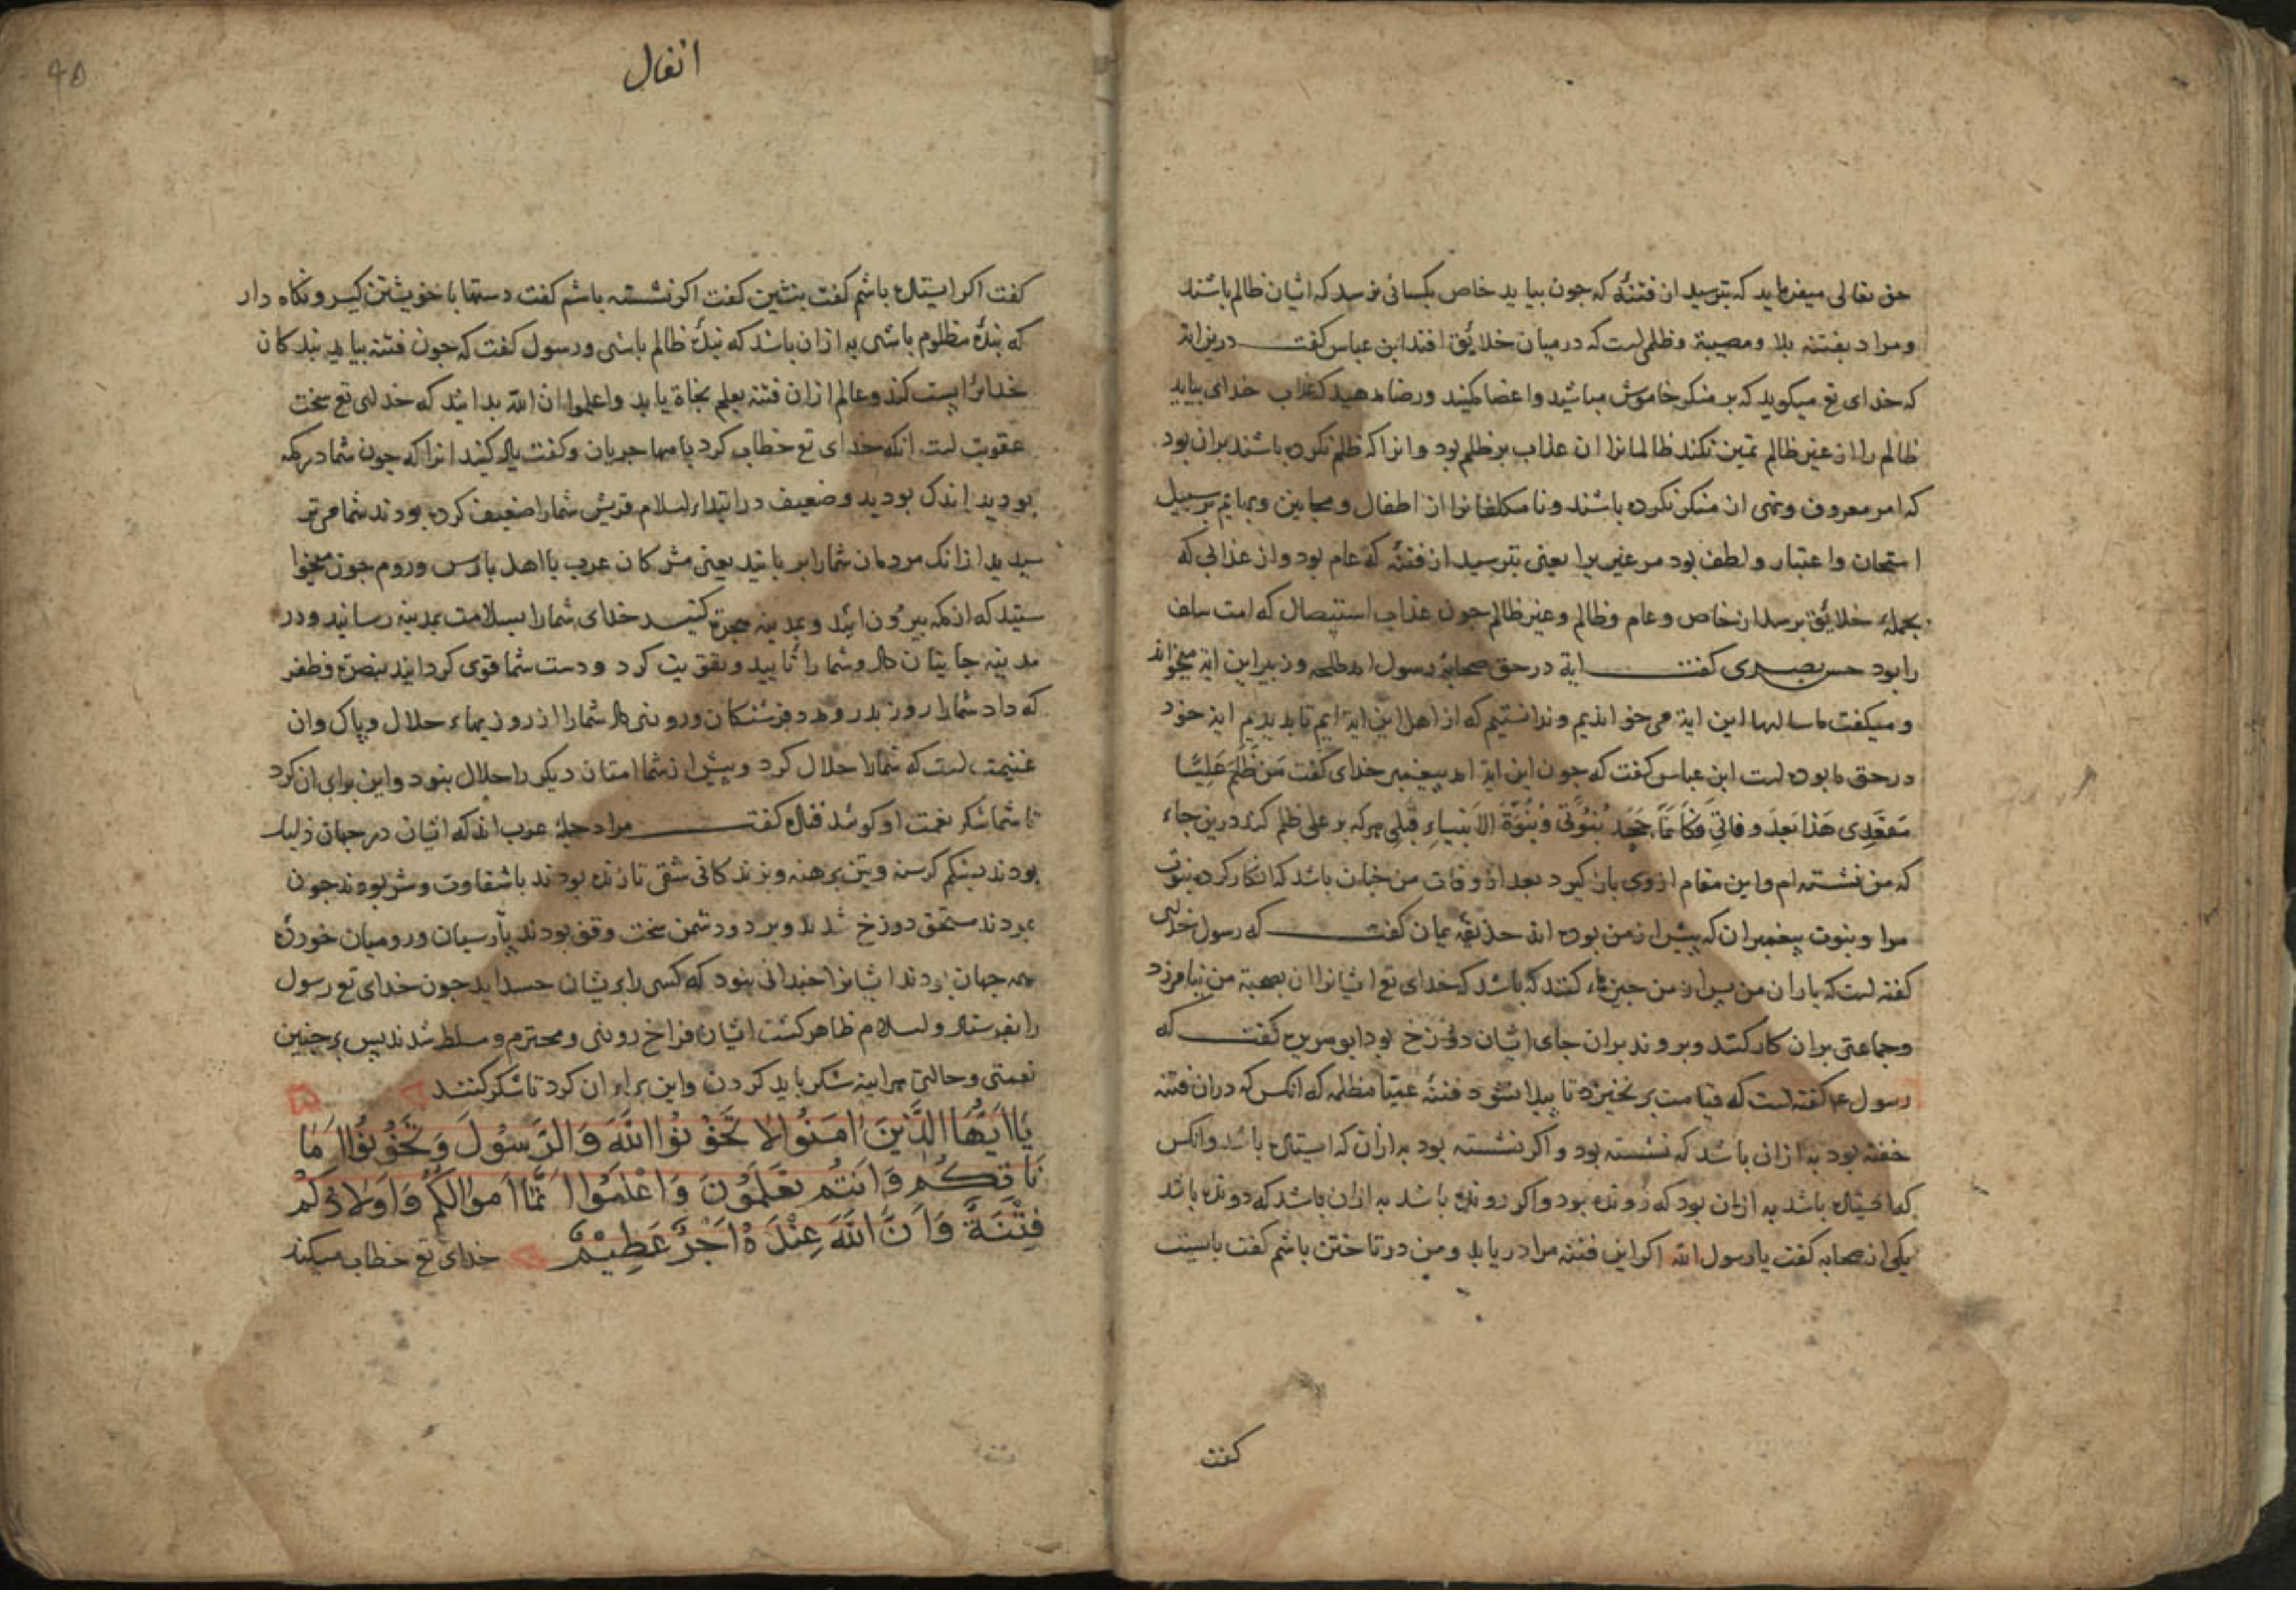 حق تعالی میفرماید که بترسید از فتنهٔ که جون بیاید خاص بکسانی نرسد که ایشان ظالم باشند
ومراد بفتنه بلا ومصیبة وظلمی است که در میان خلایق افتد ابن عباس کفت درین ایة
که خدای تع میکوید که بر منکر خاموش مباشید واعضا مکنید ورضا مدهید که عذاب خدای بیاید
ظالم را از غیر ظالم تمیز نکند ظالمانرا ان عذاب بر ظلم بود وانرا که ظلم نکرده باشند بران بود
که امر معروف ونهی از منکر نکرده باشند ونامکلفانرا از اطفال ومجانین وبهایم بر سبیل
امتحان واعتبار ولطف بود مر غیر یرا یعنی بترسید از فتنهٔ که عام بود واز عذابی که
بجملهٔ خلایق برسد از خاص وعام وظالم وغیر ظالم جون عذاب استیصال که امت سلف
را بود حسن بصری کفت ایة در حق صحابهٔ رسول امد طلحه وزبیر این ایة میخواند
ومیکفت ما سالها این ایة می خواندیم وندانستیم که از اهل این ایة ایم تا بدیدیم این خود
در حق ما بوده است ابن عباس کفت که جون این ایة امد پیغمبر خدای کفت مَنْ ظَلَمَ عَلِیًّا
مَقْعَدِی هَذَا بَعْدَ وفاتِی فَکَأَنَّمَا جَحَدَ بُنُوَّتی وَنُبُوَّةَ الاَنْبِیاءِ قَبْلِی هرکه بر علی ظلم کند درین جاء
که من نشسته ام واین مقام از وی باز کیرد بعد از وفات من جنان باشد که انکار کرده بنوت
مرا وبنوت پیغمبران که پیش از من بوده اند حذیفهٔ یمان کفت که رسول خدای
کفته است که یاران من پس از من کنند که باشد که خدای تع ایشانرا ان بصحبة من بیامرزد
وجماعتی بران کار کنند وبروند بران جای ایشان دوزخ بود ابو هریره کفت که
رسول ع کفته است که قیامت بر نخیزد تا پیدا شود فتنهٔ عمیا مظلمه که انکس که دران فتنه
خفته بود به ازان باشد که نشسته بود واکر نشسته بود به ازان که ایستاده باشد وانکس
که ایستاده باشد به ازان بود که رونده بود واکر رونده باشد به ازان باشد که دونده باشد
یکی از صحابه کفت یا رسول الله اکر این فتنه مرا دریابد ومن در تاختن باشم کفت بایست
کفت
٩۵
انفال
کفت اکر ایستاده باشم کفت بنشین کفت اکر نشسته باشم کفت دستها با خویشتن کیر ونکاه دار
که بندهٔ مظلوم باشی به ازان باشد که بندهٔ ظالم باشی ورسول کفت که جون فتنه بیاید بندکان
خدایرا پست کند وعالم ازان فتنه بعلم نجاة یابد واعلموا ان الله بدانید که خدای تع سخت
عقوبت است انکه خدای تع خطاب کرد با مهاجریان وکفت یاد کنید انرا که جون شما در مکه
بودید اندک بودید وضعیف در ابتداء اسلام قریش شمارا ضعیف کرده بودند شما می تر
سیدید ازانک مردمان شمارا بر بایند یعنی مشرکان عرب یا اهل پارس وروم جون میخوا
ستید که از مکه بیرون ایید وبمدینه هجرة کنید خدای شمارا بسلامت بمدینه رسانید ودر
مدینه جایتان داد وشمارا تایید وتقویت کرد ودست شما قوی کردانید بنصرة وظفر
که داد شمارا روز بدر ومدد فرشتکان وروزی داد شمارا از روزیهاء حلال وپاک وان
غنیمت است که شمارا حلال کرد وپیش از شما امتان دیکر را حلال بنود واین برای ان کرد
تا شما شکر نعمت او کوئید قتاده کفت مراد جملهٔ عرب اند که ایشان در جهان ذلیل
بودند بشکم کرسنه وبتن برهنه وبزندکانی شقی تا زنده بودند با شقاوت وشر بودند جون
بمردند مستحق دوزخ شدند وبر دو دشمن سخت وقف بودند پارسیان ورومیان خوردهٔ
همه جهان بودند ایشانرا جندانی بنود که کسی را بریشان حسد اید جون خدای تع رسول
را بفرستاد واسلام ظاهر کشت ایشان فراخ روزی ومحترم ومسلط شدند پس بر جنین
نعمتی وحالتی هراینه شکر باید کردن واین برای ان کرد تا شکر کنند
یَا اَیُّهَا الَّذِینَ اٰمَنُوا لَا تَخُوْنُوْا اللَّهَ وَالرَّسُوْلَ وَتَخُوْنُوْا اَمَا
نَاتِکُمْ وَاَنْتُمْ تَعْلَمُوْنَ وَاعْلَمُوْا اَنَّمَا اَمْوَالُکُمْ وَاَوْلَادُکُمْ
فِتْنَةٌ وَاَنَّ اللَّهَ عِنْدَهُ اَجْرٌ عَظِیْمٌ خدای تع خطاب میکند